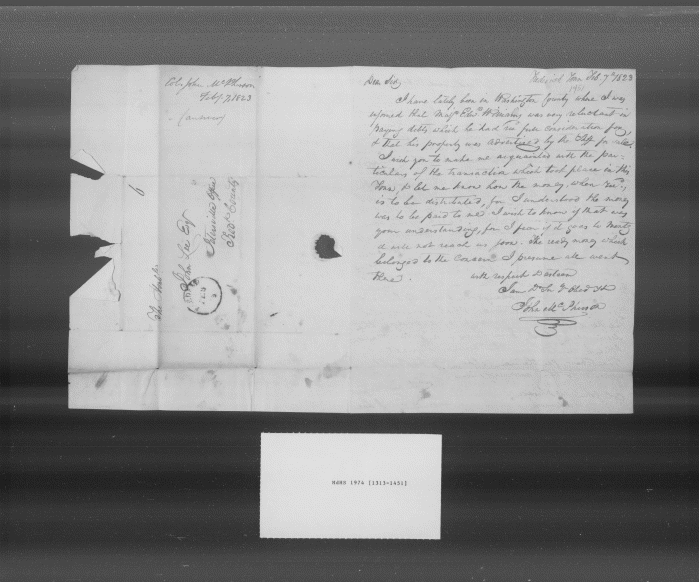 Col. John McPherson
Feby 7, 1823
(answered)
6
John Lee Esqr
Fredk County
Frederick Town Feb. 7th 1823
Dear Sir,
I have lately been in Washington County where I was
informed that Majr Edwd was very reluctant in
paying debts, which he had full consideration for,
& that his property was advertised by the Shff for sale.
I wish you to make me acquainted with the par-
ticulars of the transaction which took place in this
Town, & let me know how the money, when
is to be distributed, for I understood the money
was to be paid to me. I wish to know if that was
your understanding, for I fear if it goes to
it will not reach us soon. The ready money which
belonged to the Concern I presume all went
there.
with respect Dear Sir
I am Dr Sir Yr Obed St
John McPherson
MSMS 1974 [1313-1451]